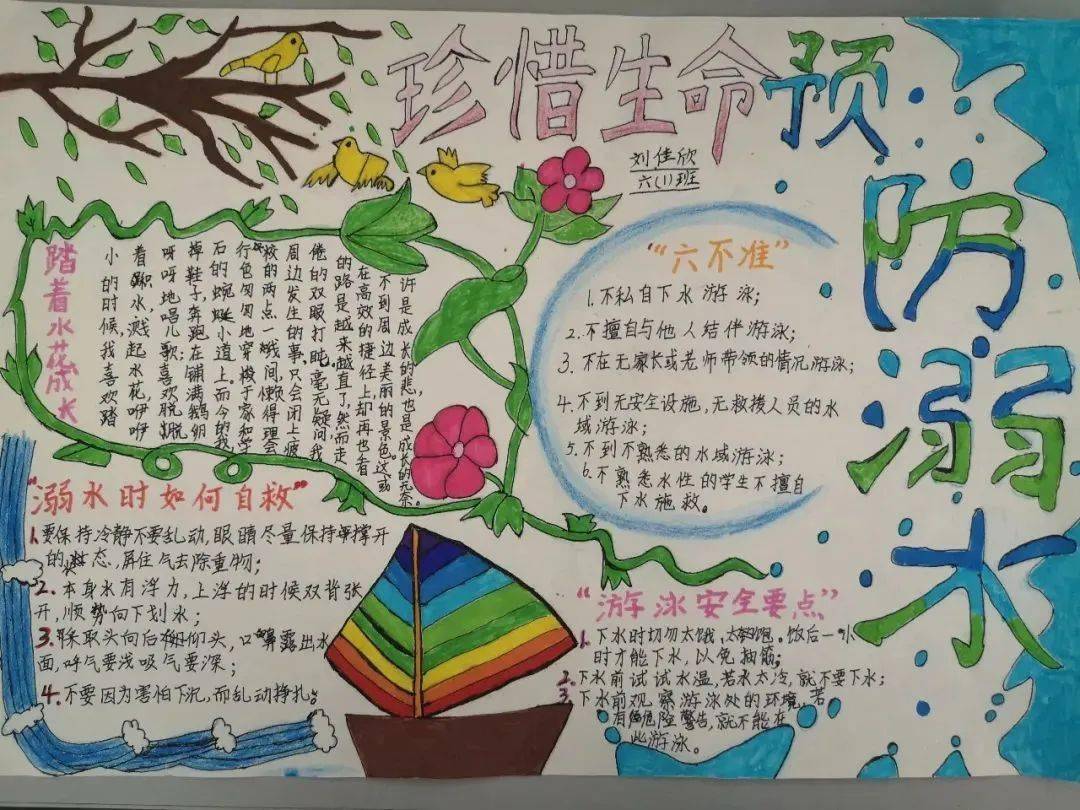 珍惜生命预
防
溺
水
刘佳欣
六(1)班
踏着水花成长
小的时候,我喜欢踏
着积水,溅起水花,咿咿
呀呀地唱儿歌;喜欢脱
掉鞋子,奔跑在铺满鹅卵
石的蜿蜒小道上。而今的我
行色匆匆地穿梭于家和学
校的两点一线间,懒得理会
周边发生的事,只会闭上疲
倦的双眼打盹。毫无疑问,我
的路是越来越直了,然而走
在高效的捷径上,却再也看
不到周边美丽的景色。这或
许是成长的悲,也是成长的无奈。
“六不准”
1.不私自下水游泳;
2.不擅自与他人结伴游泳;
3.不在无家长或老师带领的情况游泳;
4.不到无安全设施,无救援人员的水
域游泳;
5.不到不熟悉的水域游泳;
6.不熟悉水性的学生不擅自
下水施救。
“溺水时如何自救”
1.要保持冷静不要乱动,眼睛尽量保持撑开
的状态,屏住气去除重物;
2.本身水有浮力,上浮的时候双臂张
开,顺势向下划水;
3.采取头向后仰头,口鼻露出水
面,呼气要浅吸气要深;
4.不要因为害怕下沉,而乱动挣扎。
“游泳安全要点”
1.下水时切勿太饿,太饱。饭后一小
时才能下水,以免抽筋;
2.下水前试试水温,若水太冷,就不要下水;
3.下水前观察游泳处的环境,若
有危险警告,就不能在
此游泳。